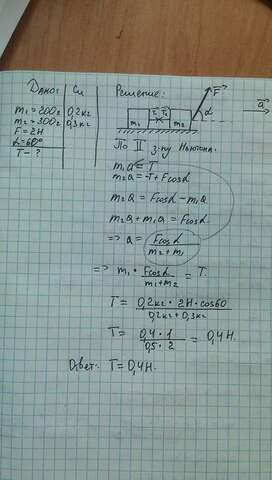 Дано: Си Решение:
m₁=200г 0,2кг
m₂=300г 0,3кг
F=2Н
α=60°
T-?
m₁ T T₂ m₂ F α a
По II з-ну Ньютона.
m₁a = T
m₂a = -T + Fcosα
m₂a = Fcosα - m₁a
m₂a + m₁a = Fcosα
=> a = Fcosα / (m₂ + m₁)
=> m₁ · Fcosα / (m₁+m₂) = T
T = 0,2кг · 2Н · cos60 / (0,2кг + 0,3кг)
T = 0,4 · 1 / (0,5 · 2) = 0,4Н.
Ответ: T = 0,4Н.